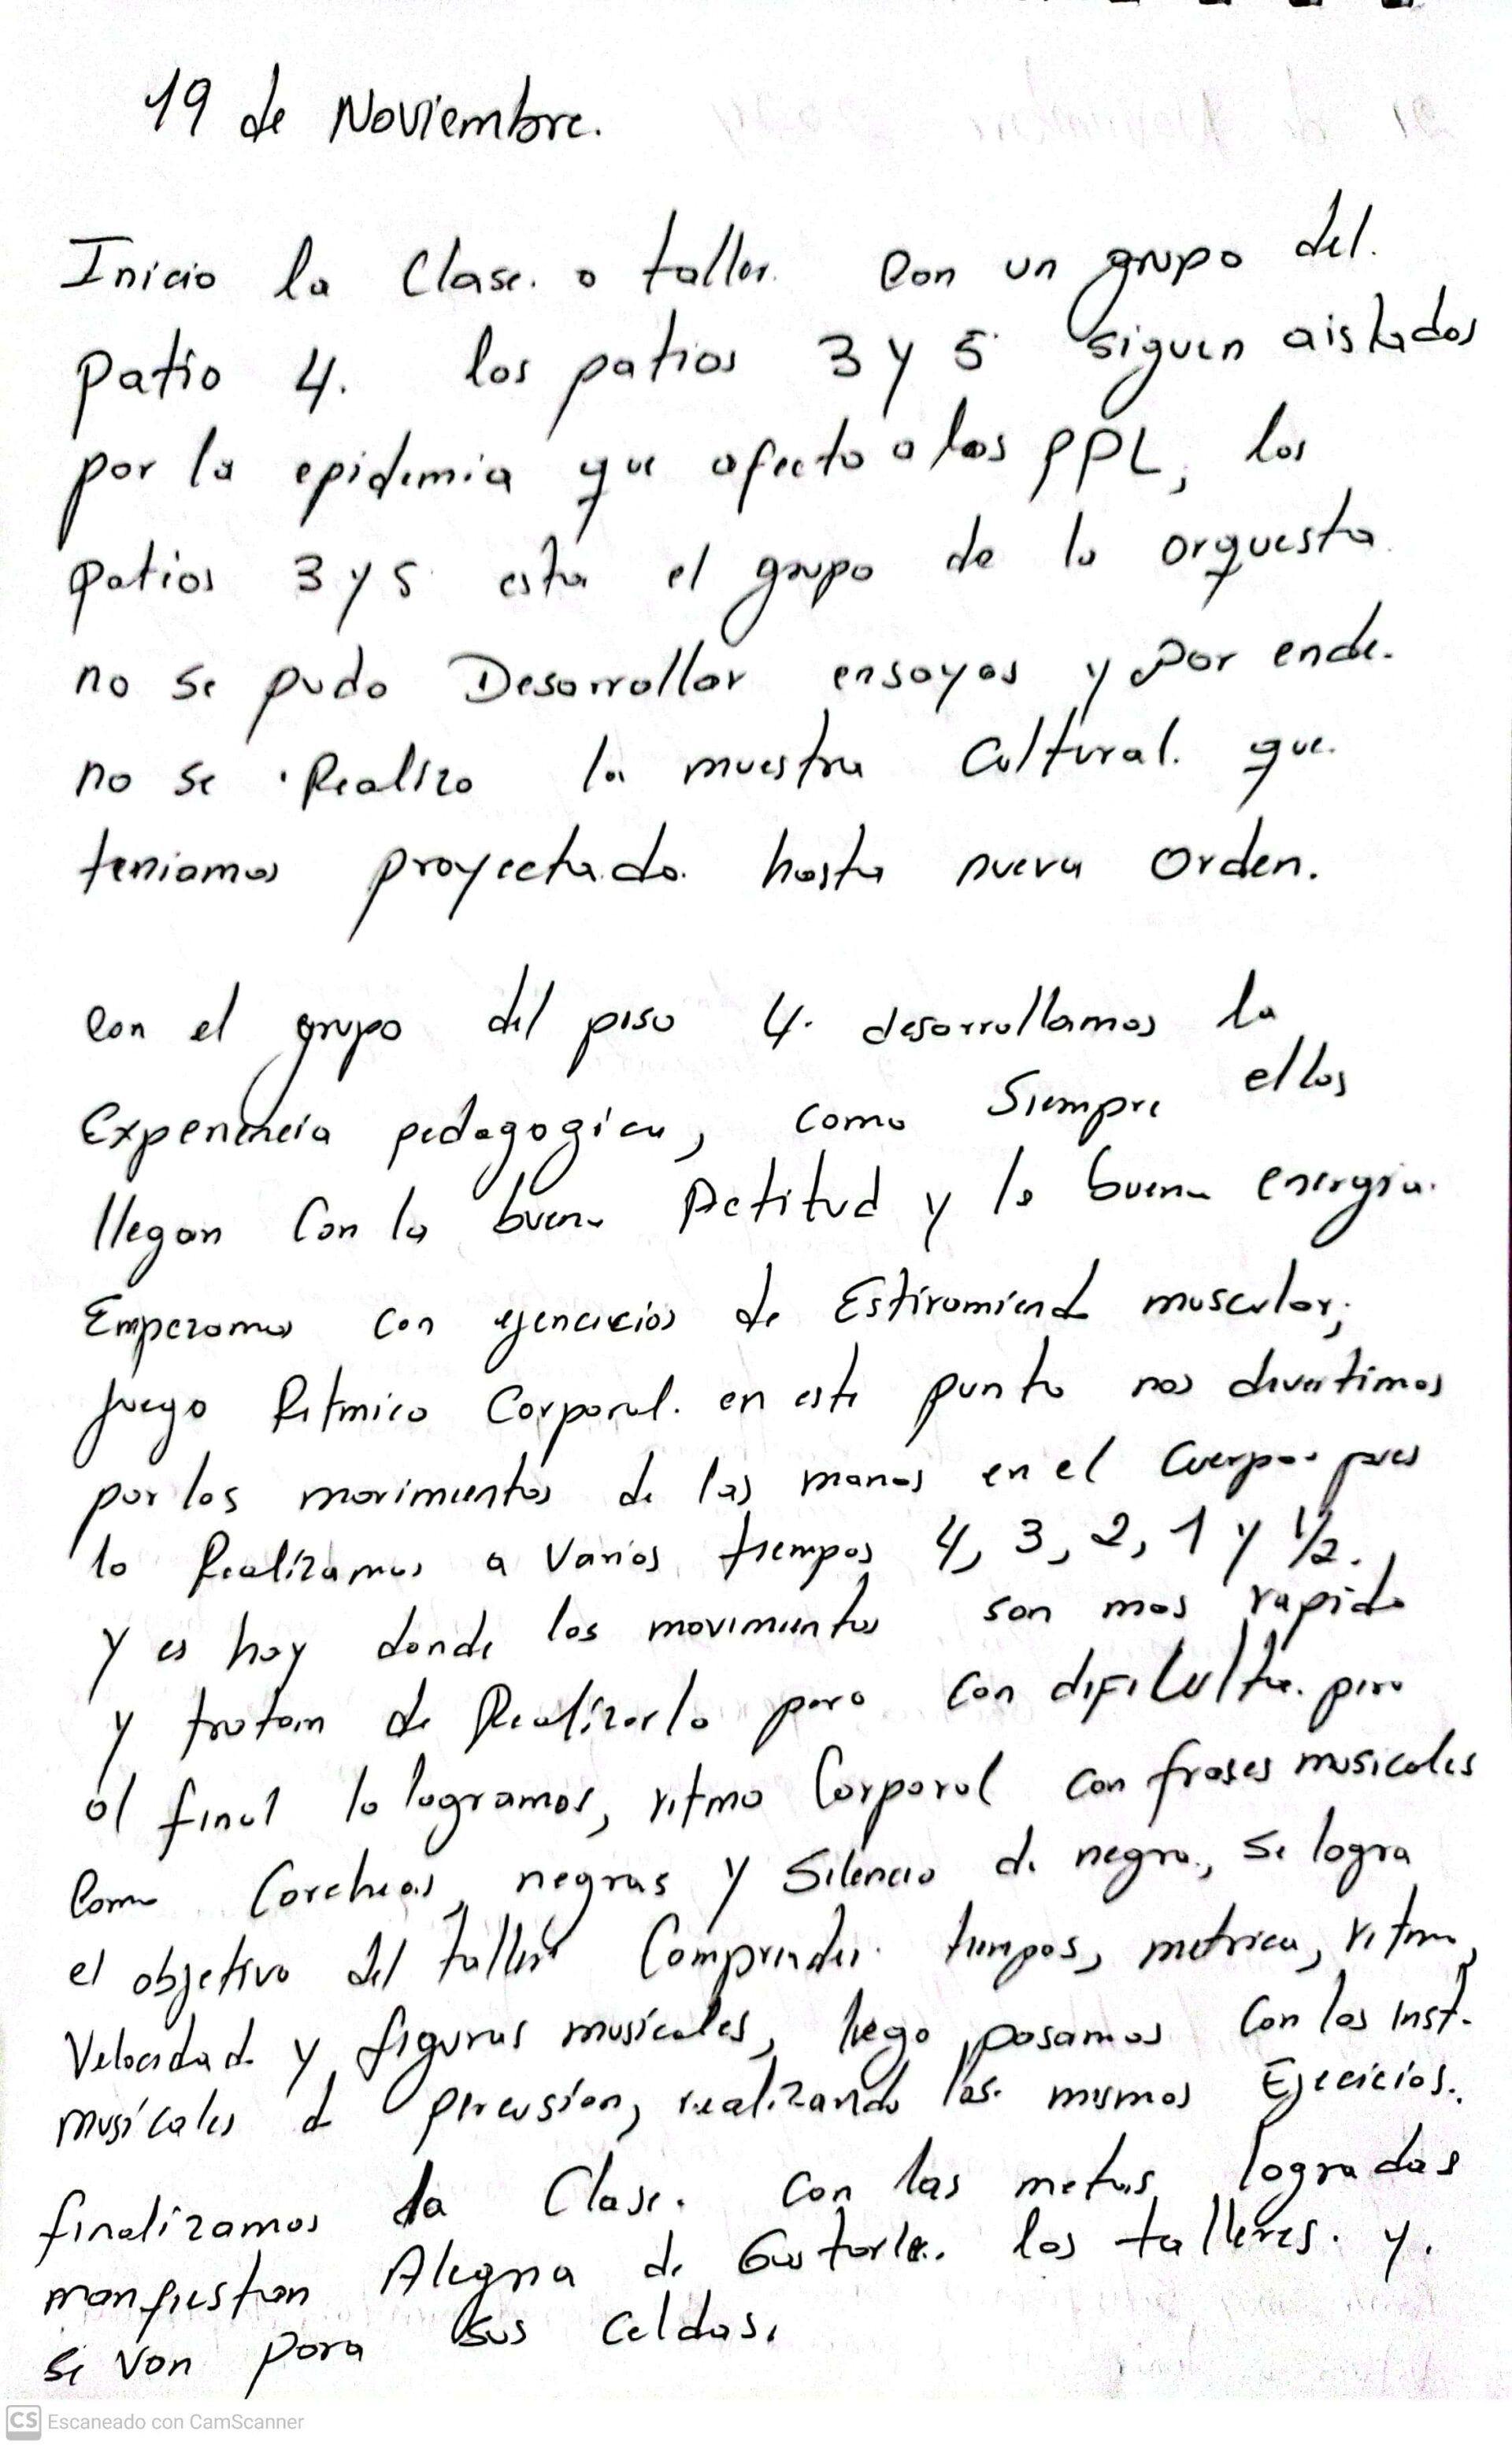 19 de Noviembre.
Inicio la Clase. o taller. Con un grupo del.
Patio 4. los patios 3 y 5 siguen aislados
por la epidemia que afecto a los PPL, los
patios 3 y 5 esta el grupo de la orquesta
no se pudo Desarrollar ensayos y por ende.
no se Realizo la muestra Cultural. que.
teniamos proyectado. hasta nueva Orden.
Con el grupo del piso 4. desarrollamos la
Experiencia pedagogica, como Siempre ellos
llegan Con la buena Actitud y la buena energia.
Empezamos con ejercicios de Estiramiento muscular,
juego Ritmico Corporal. en este punto nos divertimos
por los movimientos de las manos en el Cuerpo pues
lo Realizamos a Varios tiempos 4, 3, 2, 1 y 1/2.
y es hay donde los movimientos son mas rapido
y tratan de Realizarlo pero con dificulta. pero
al final lo logramos, ritmo Corporal con frases musicales
Como Corcheas, negras y Silencio de negra, Se logra
el objetivo del taller Comprender tiempos, metrica, ritmo,
Velocidad y figuras musicales, luego pasamos Con los inst.
musicales d percusion, realizando los mismos Ejecicios.
finalizamos la Clase. Con las metas logradas
manfiestan Alegria de Gustarle. los talleres. y.
se van para sus celdas.
CS Escaneado con CamScanner